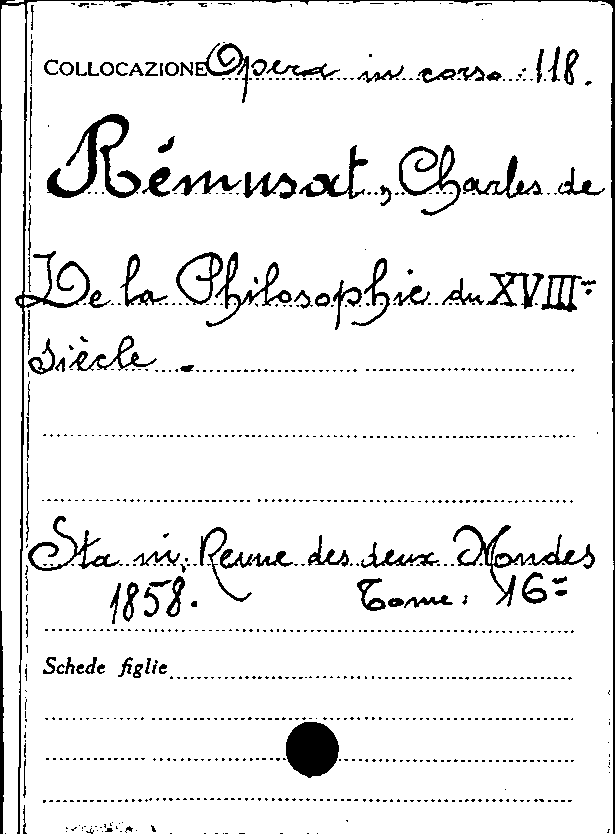 COLLOCAZIONE Opera in corso: 118.
Rémusat, Charles de
De la Philosophie du XVIII=
siècle.
Sta in: Revue des deux Mondes
1858. Tome: 16=
Schede figlie